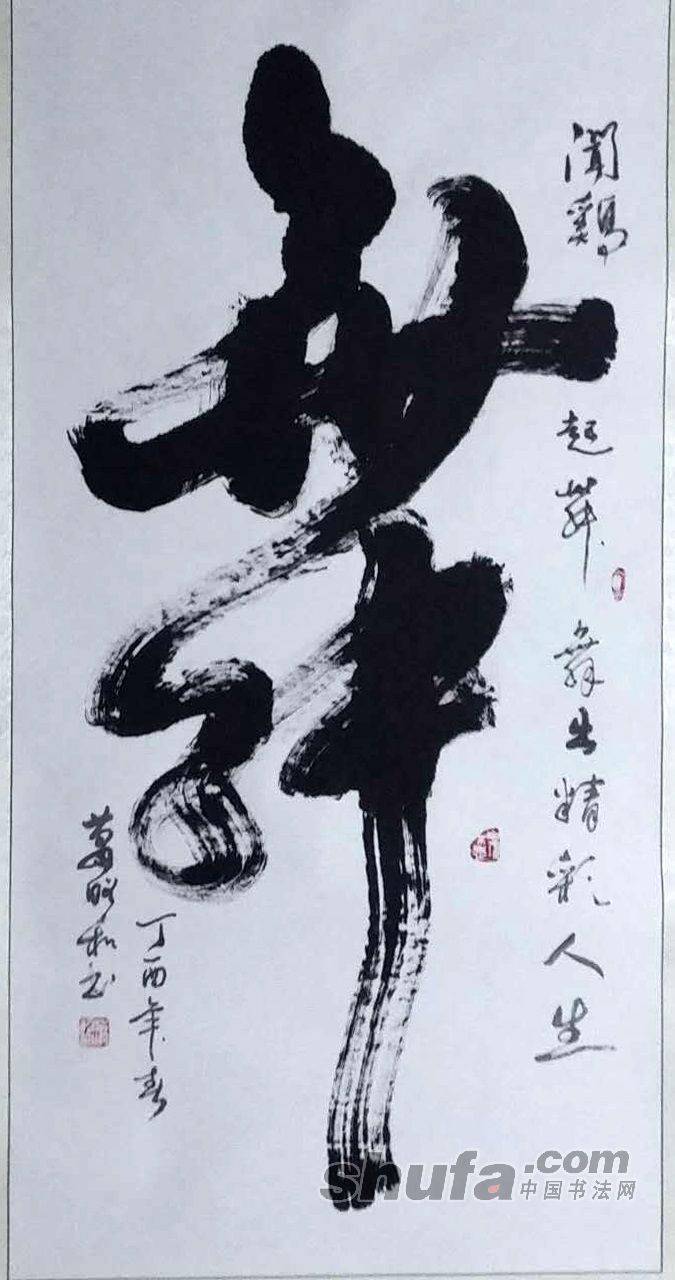 舞
闻鸡
起舞舞出精彩人生
丁酉年春
书
shufa.com
中国书法网